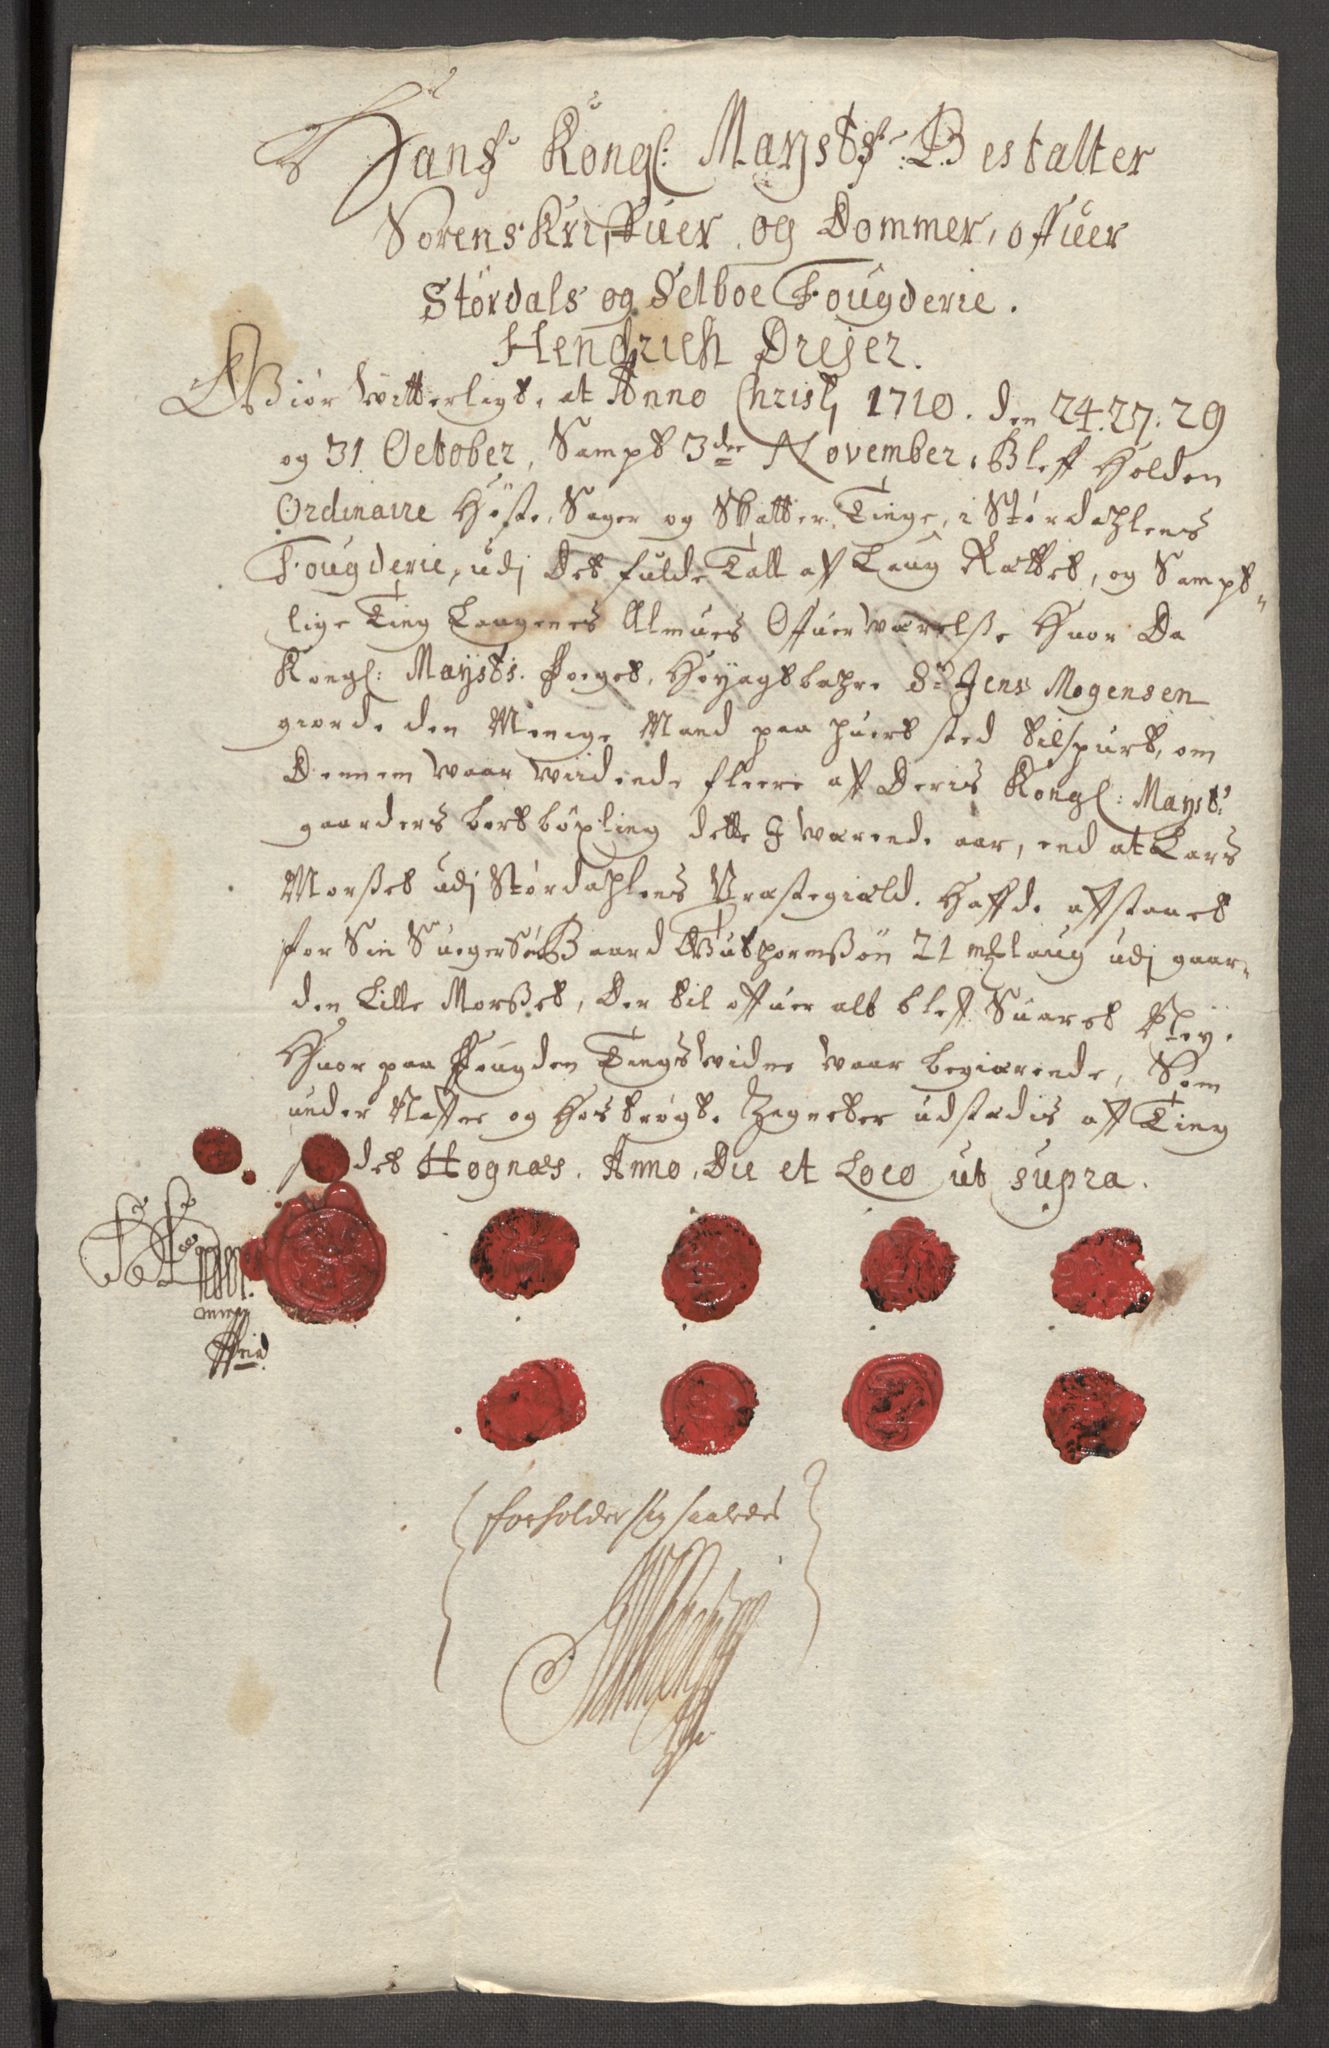 Hans Kongl: Maysts: Bestalter
Sorenskriffuer og Dommer, offuer
Stördals og Selboe Fougderie.
Hendrich Dreyer.
Giör witterligt, at Anno Christi 1710. den 24. 27. 29
og 31 October, Sampt 3die November, Bleff Holden
Ordinaire Höste, Sager og Skatter Tinge, i Stördahlens
Fougderie, udj Det fulde Tall aff Laug Rættet, og Sampt-
lige Ting Laugenes Almues Offuerwærelsse Huor Da
Kongl: Maysts. Foeget, Höyagtbahre Sr. Jens Mogensen
giorde den Menige Mand paa huert sted tilspurt, om
Dennem waar widende fleere aff Deris Kongl: Mayts:
gaarders bortböxling dette Jwærende aar, end at Lars
Morsset udj Stördahlens Præstegiæld. Haffde affstaaet
for Sin Suegersön Baard Guthormssön 21 mklaug udj gaar-
den Lille Morsset, Der til offuer alt bleff Suaret Ney.
Huor paa Fougden Tingswidne waar begiærende, Som
under Naffne og Hoströgt. Zegneter udstædis aff Ting
stædet Hognæs. Anno, Die et Loco ut supra.
forholder sig saaledes